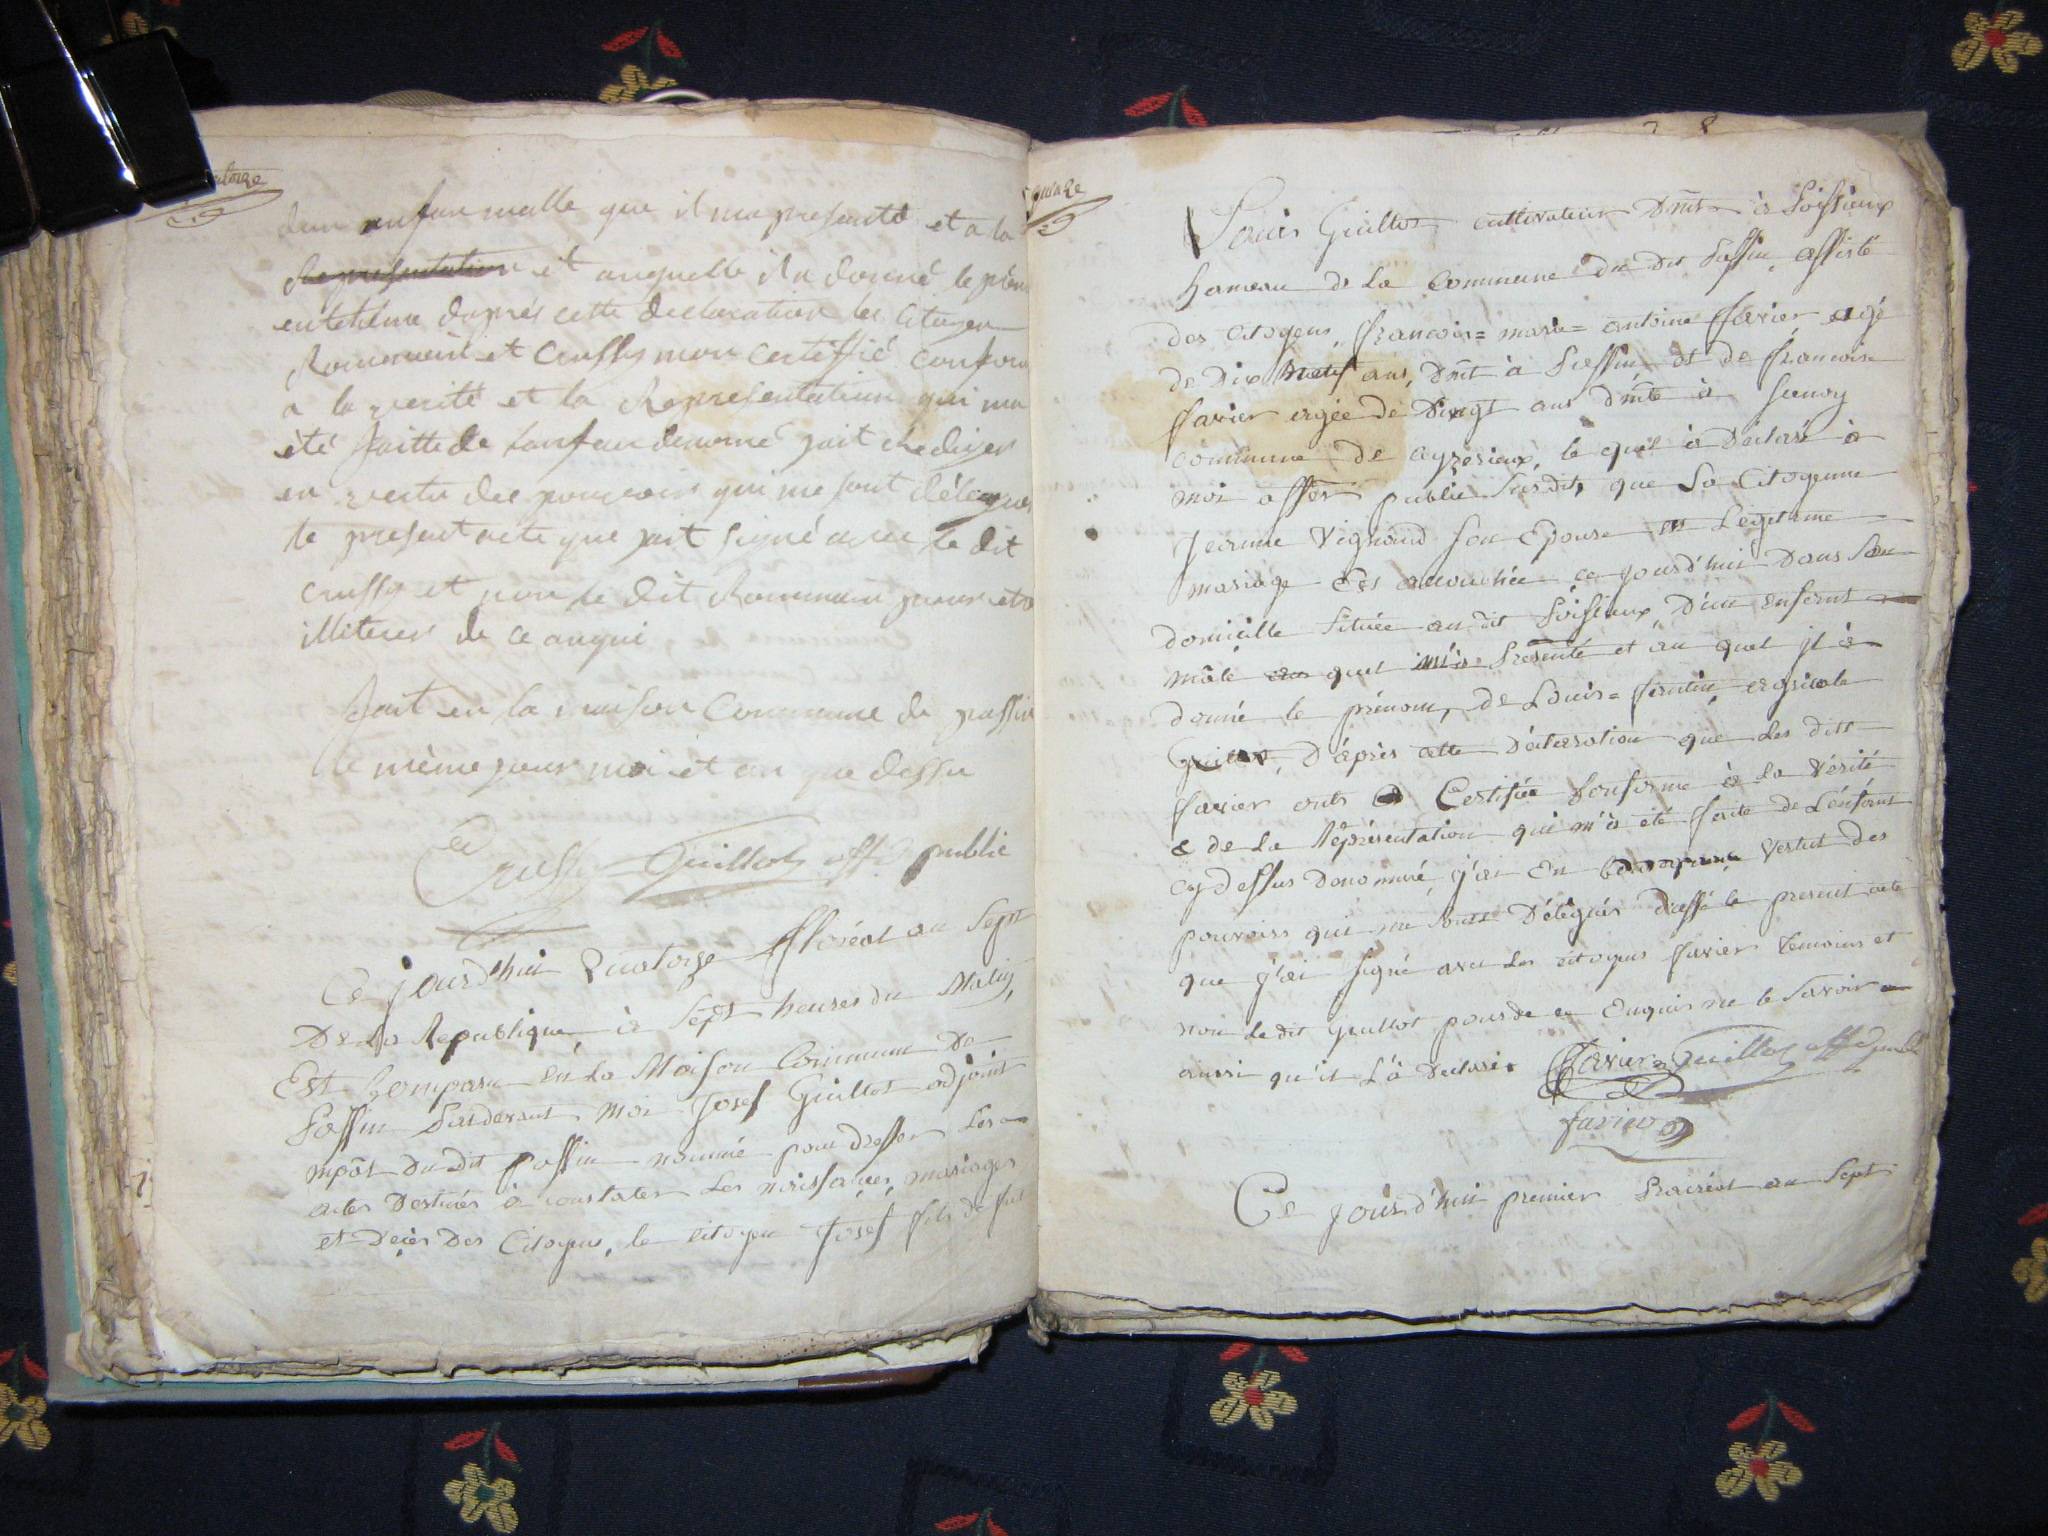 dun enfan malle que il ma presenté et a la
Representation et auquelle il a donné le préno
enthelme dapres cette declaration les Citoyen
Roumanin et Crussy mon certiffié confor
a la verité et la Representation qui ma
été faitte de lanfan denomé jait Rediger
en vertu des pouvoir qui me sont délegués
le present acte que jait signé avec le dit
Crussy et non le dit Roumanin pour etre
illiterer de ce anqui
fait en la maison Commune de passin
le même jour moi et an que dessu
Crussy Guillot off. public
Ce jourd'hui Quatorze floréal an Sept
De La Republique, à Sept heures du Matin,
Est Comparu en La Maison Commune De
Passin Pardevant moi Josef Guillot adjoint
mpâl Du dit passin nommé pour dresser Les
actes Destinés à constater Les naissances, mariages
et Décès Des Citoyens, le citoyen Josef fils de fut
Louis Guillot cultivateur Dmt à Poisieux
hameau de La Commune du dit Passin, assisté
des Citoyens, francois= marie= antoine favier agé
de Dix Neuf ans, Dmt à Passin et de francoise
favier agée de Vingt ans Dmte à
Commune de, le quel à Déclaré à
moi offer public Susdit, que La Citoyenne
Jeanne Vignand son Epouse en Legitime
mariage Est accouchée ce jourd'hui Dans Son
domicille Située au dit Poisieux, D'un enfant
mâle quel m'à Presenté et au quel il à
donné le prénom, de Louis= agricole
Guillot, D'après cette Déclaration que Les dits
favier onts Certifiée Conforme à La Vérité
& de La Réprésentation qui m'à été faite de L'énfant
cy dessus Dénommé, j'ai En Vertut Des
pouvoirs qui me Sonts Délégués dressé le present acte
que j'ai Signé avec Les citoyens favier temoins et
non le dit Guillot pour de ce Enquis ne le Savoir
ainsi qu'il L'à Déclaré. favier Guillot off. public
favier
Ce jourd'hui premier Prairéal an Sept